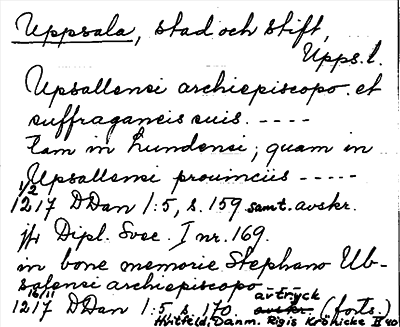 Uppsala, stad och stift,
Upps. l.
Upsallensi archiepiscopo. et
suffraganeis suis. ----
tam in Lundensi, quam in
Upsallensi prouinciis -----
1/2
1217 DDan 1:5, s. 159 samt. avskr.
jfr Dipl. Svec. I nr. 169.
in bone memorie Stephano Ub-
salensi archiepiscopo
16/11
1217 DDan 1:5, s. 170. avskr. avtryck (forts.)
Hvitfeld, Danm. Rigis Krønicke II 40